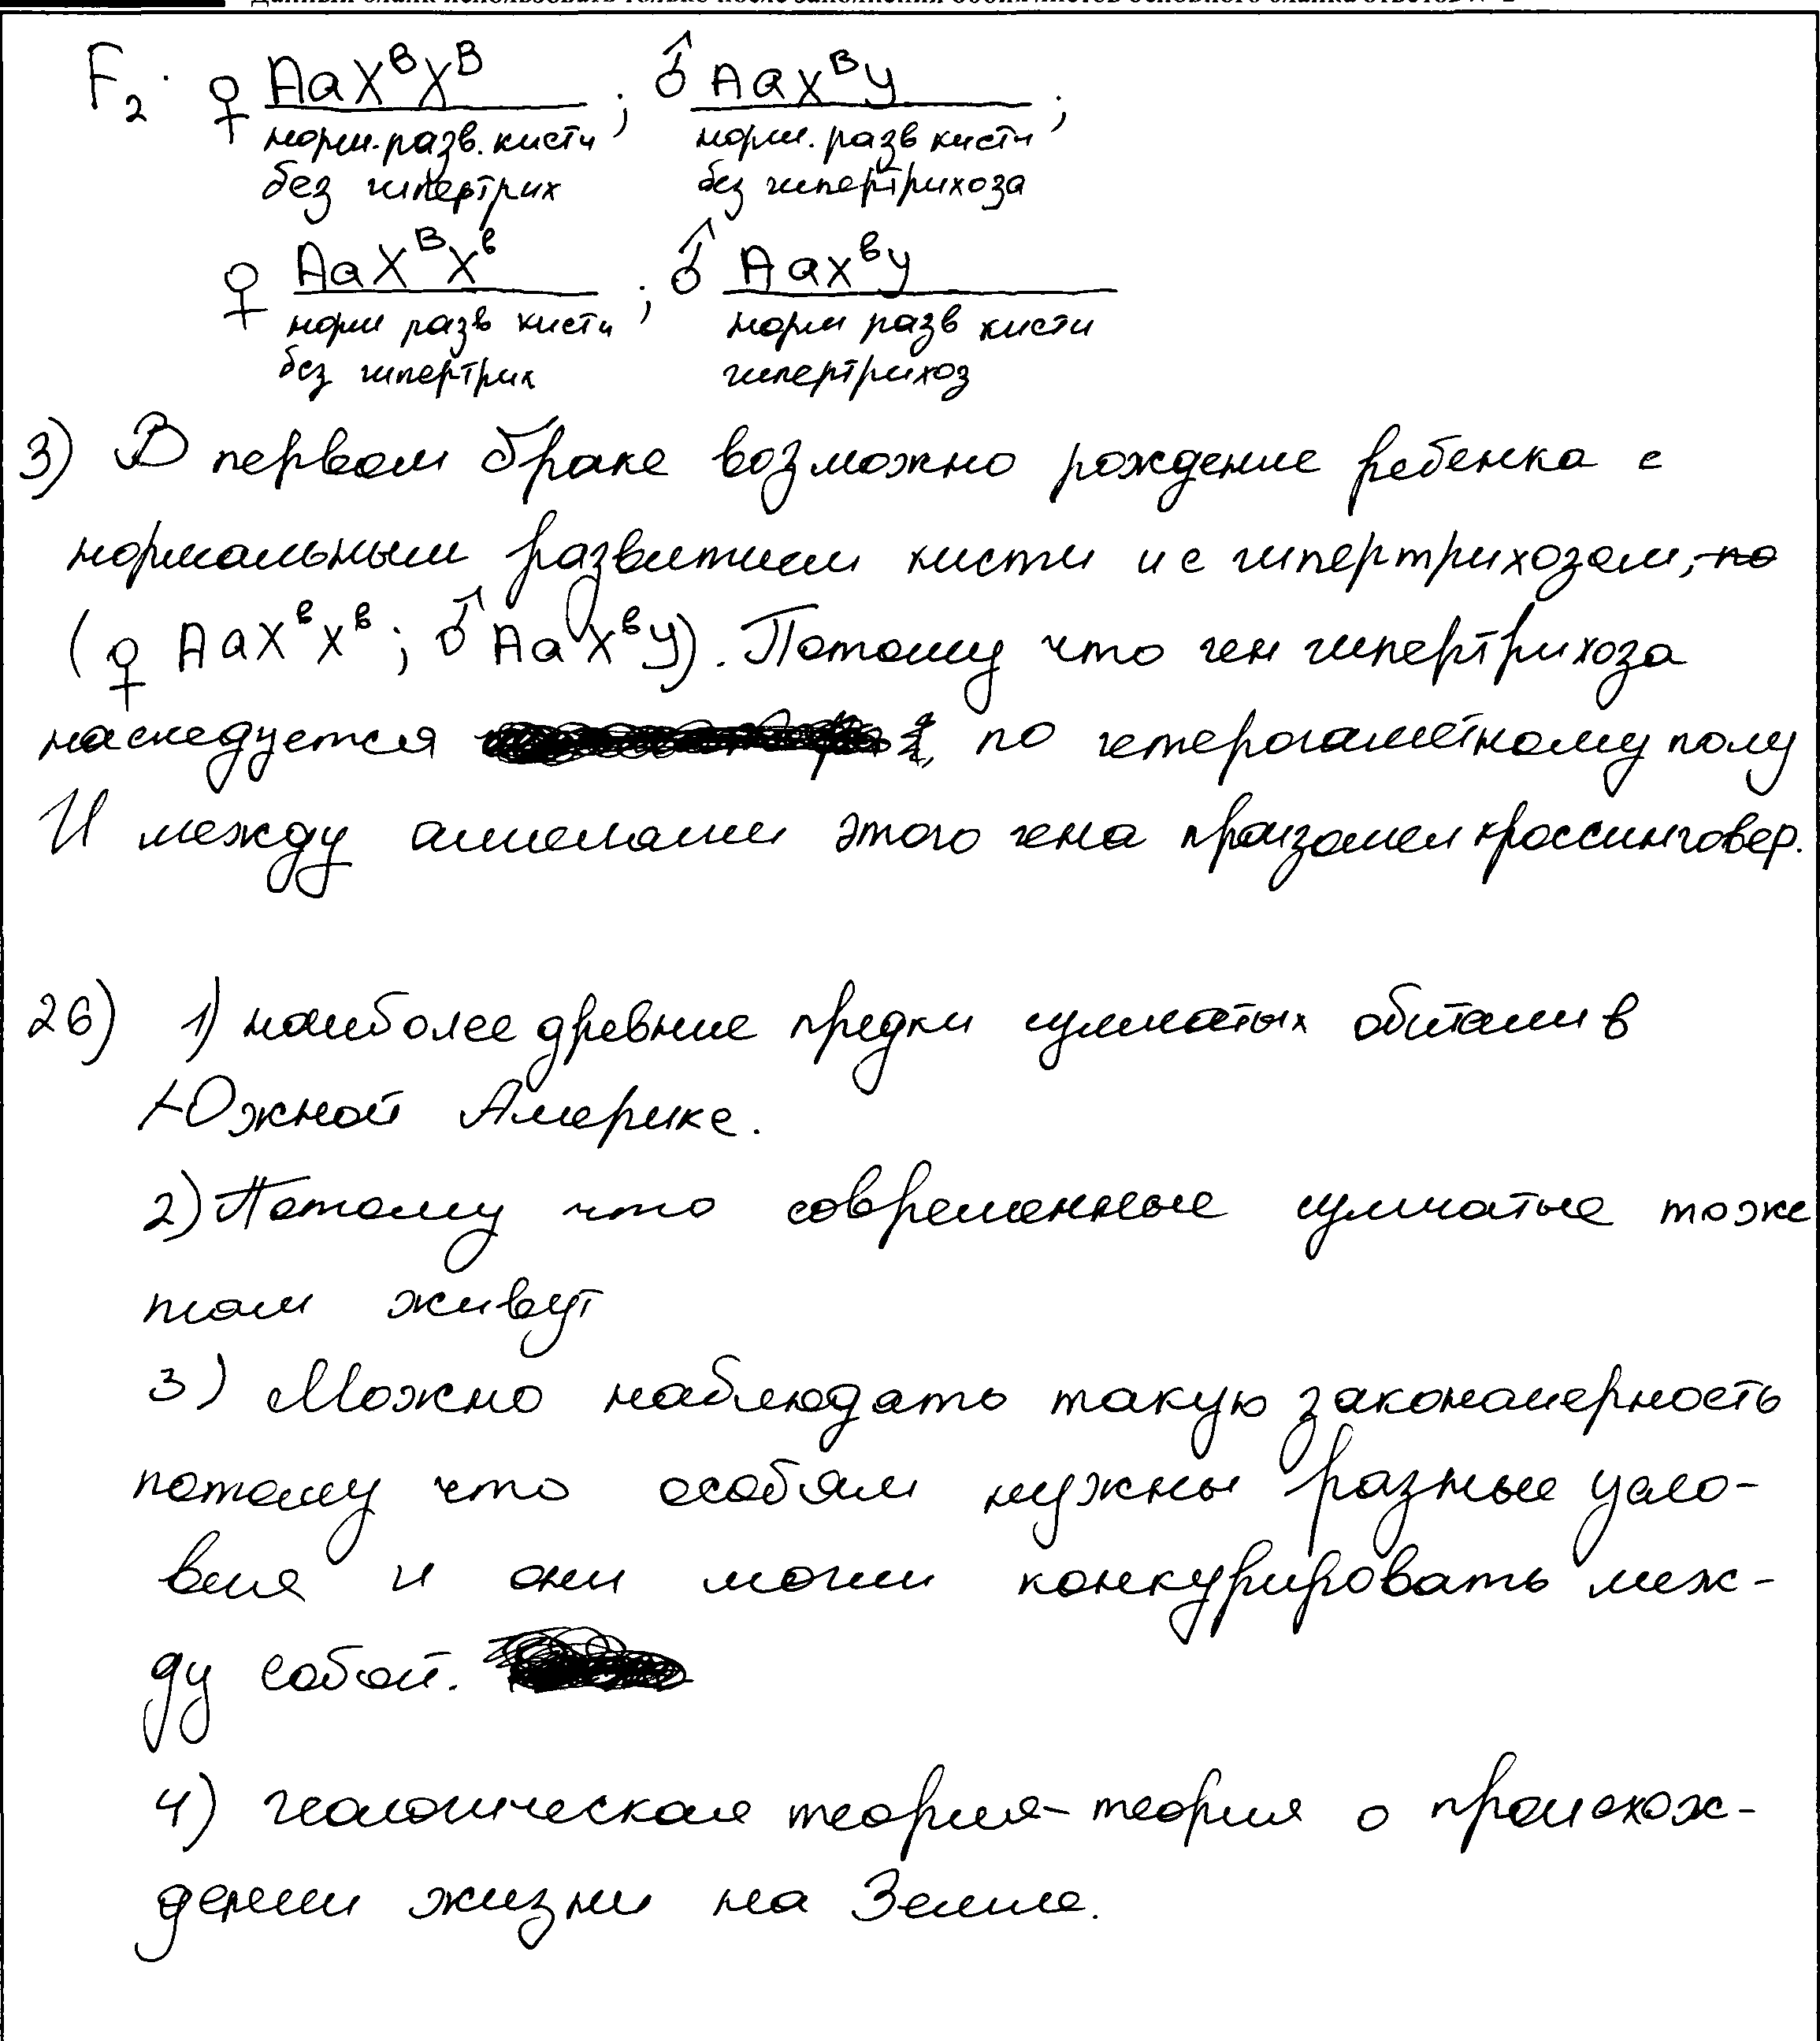 Данный бланк использовать только после заполнения обоих листов основного бланка ответов № 2
F₂. ♀ AaXᴮXᴮ ; ♂ AaXᴮY ;
норм. разв. кисти норм. разв кисти
без гипертрих без гипертрихоза
♀ AaXᴮXᵇ ; ♂ AaXᵇY
норм разв кисти норм разв кисти
без гипертрих гипертрихоз
3) В первом браке возможно рождение ребенка с
нормальным развитием кисти и с гипертрихозом, по
(♀ AaXᵇXᵇ ; ♂ AaXᵇY). Потому что ген гипертрихоза
наследуется по гетерогаметному полу
И между аллелями этого гена произошел кроссинговер.
26) 1) наиболее древние предки сумчатых обитали в
Южной Америке.
2) Потому что современные сумчатые тоже
там живут
3) Можно наблюдать такую закономерность
потому что особям нужны разные усло-
вия и они могли конкурировать меж-
ду собой.
4) геологическая теория - теория о происхож-
дении жизни на Земле.